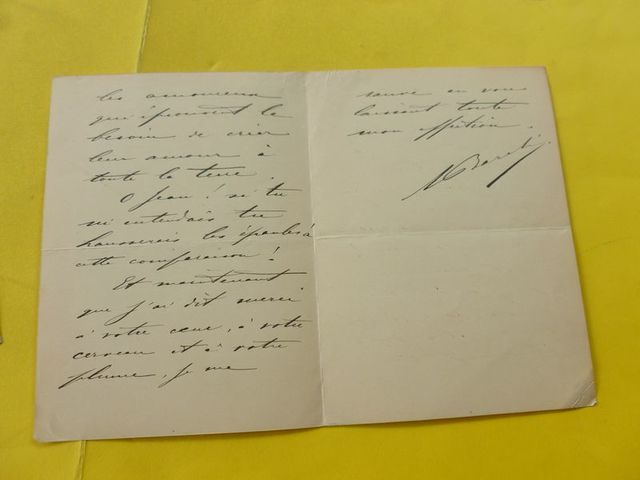 les amoureux
qui éprouvent le
besoin de crier
leur amour à
toute la terre.
O Jean! si tu
m'entendais tu
hausserais les épaules à
cette comparaison!
Et maintenant
que j'ai dit merci
à votre cœur, à votre
cerveau et à votre
plume, je me
sauve en vous
laissant toute
mon affection.